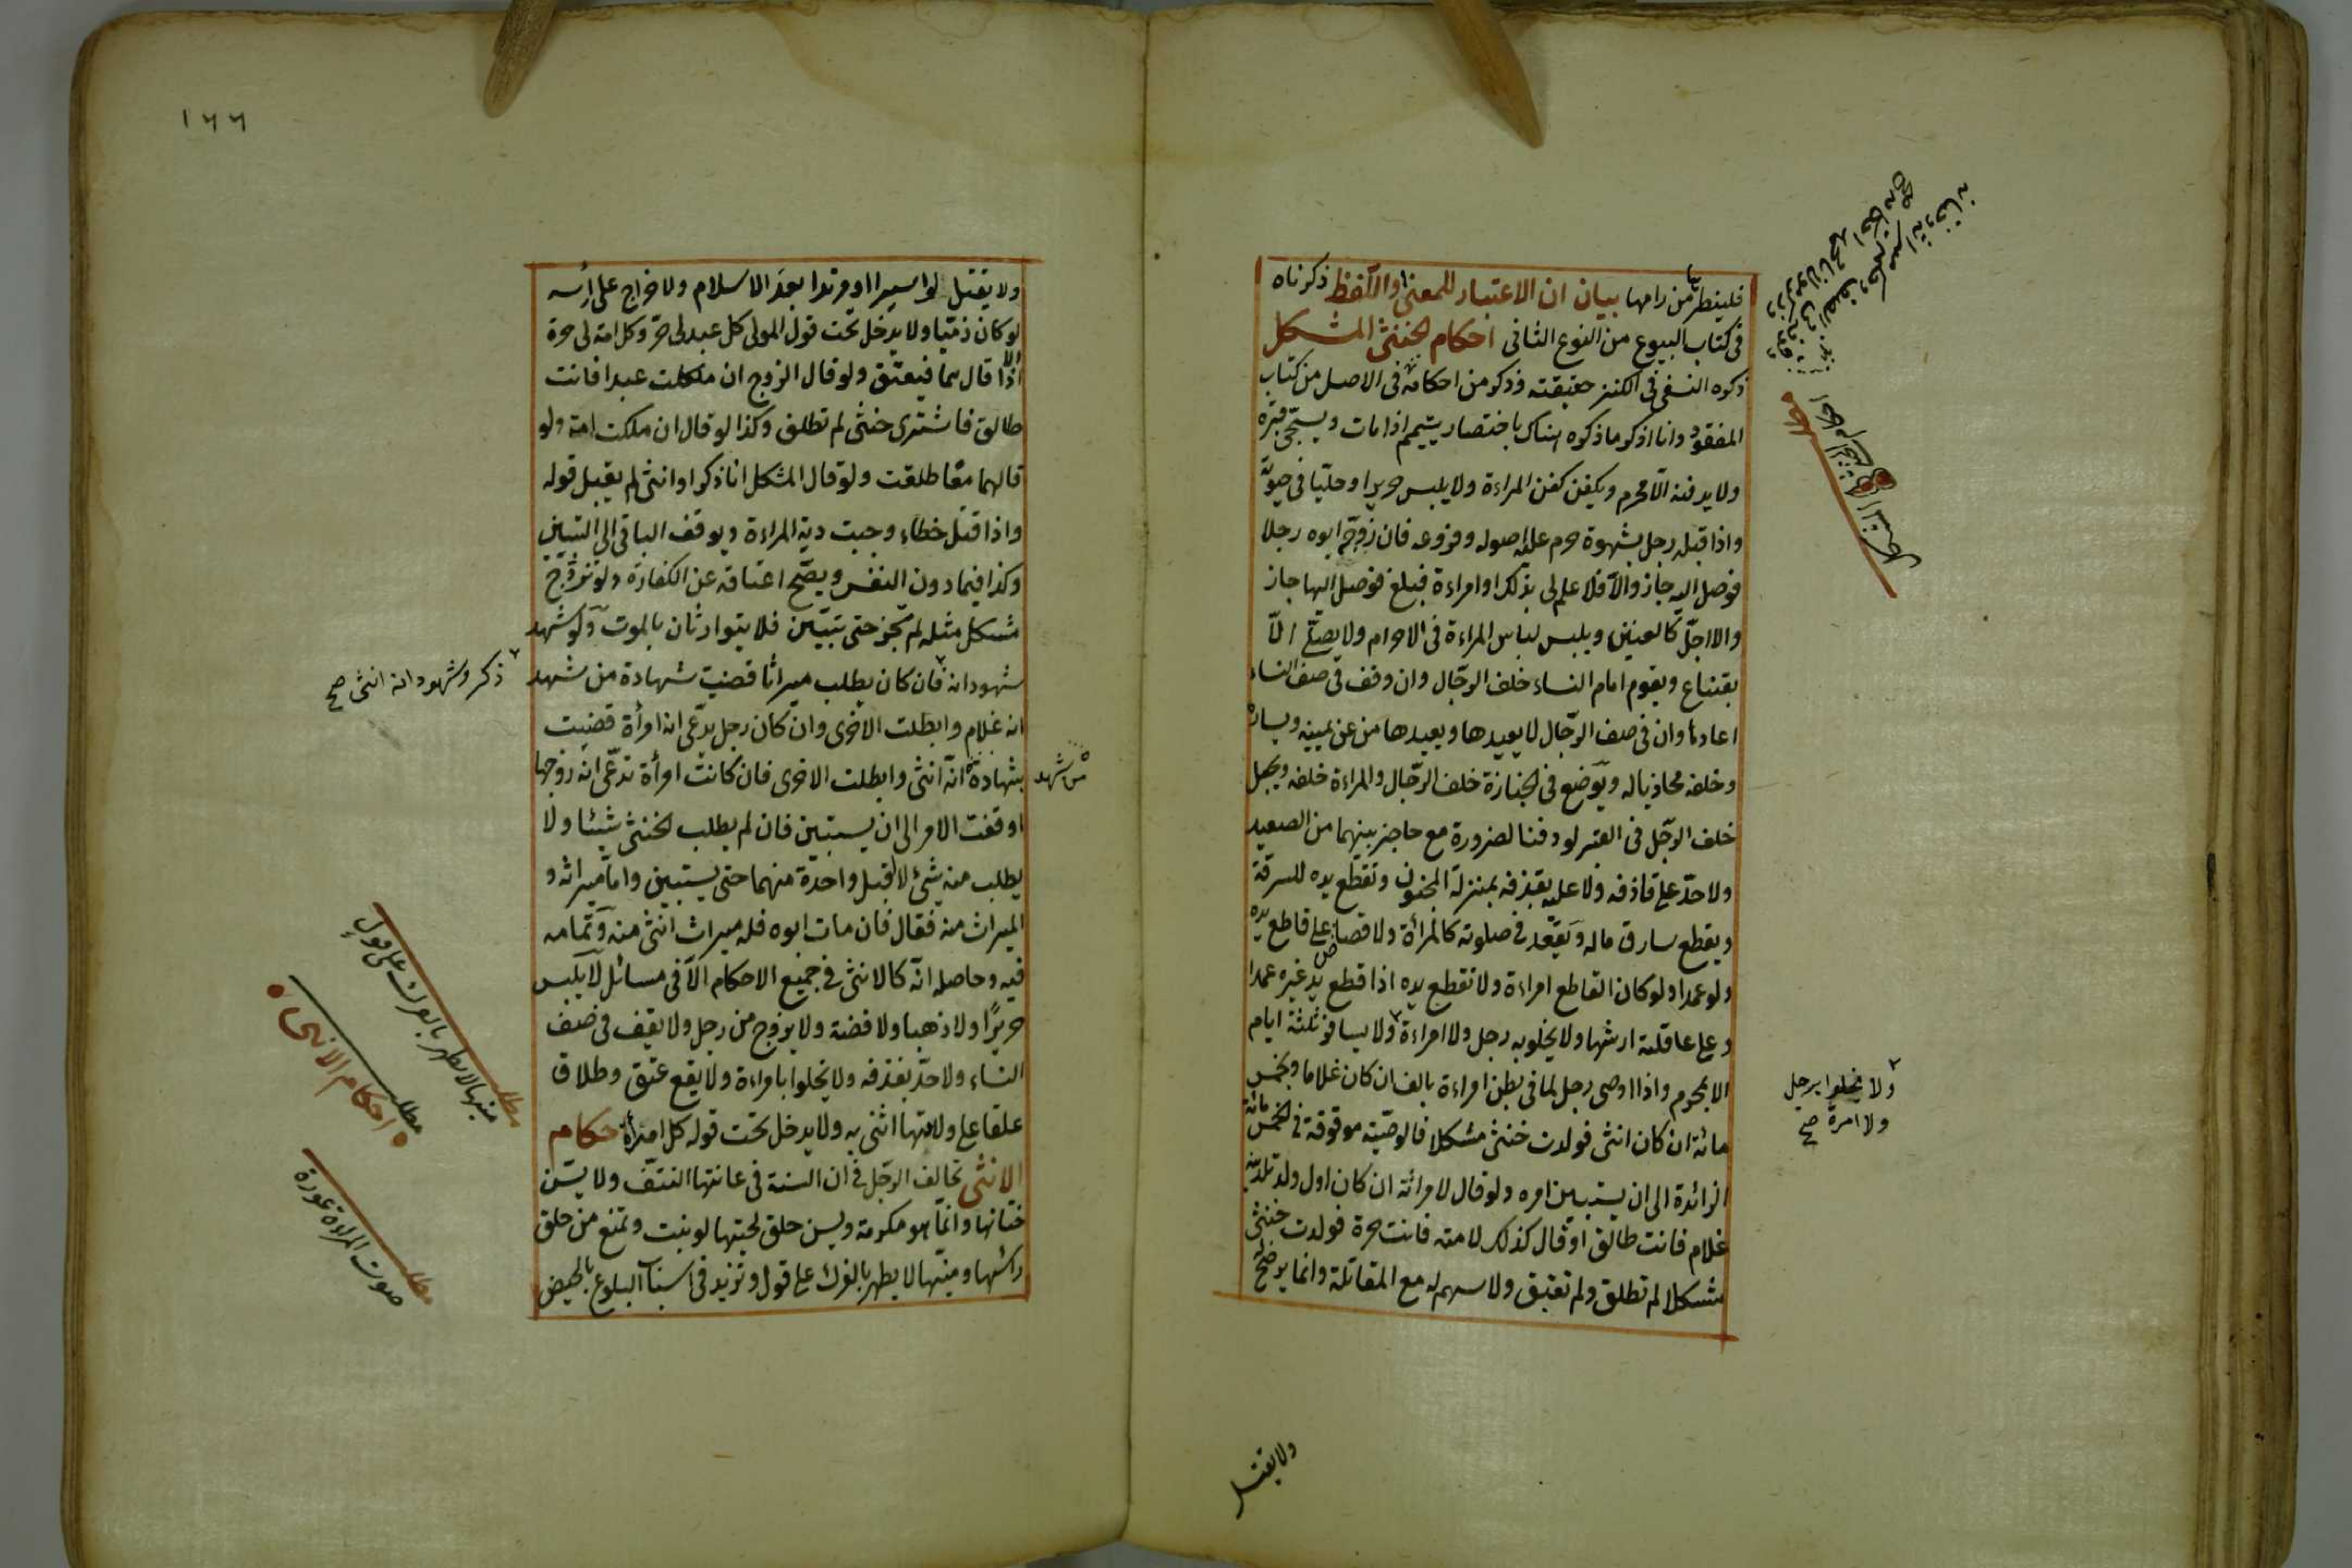 فلينظر ثمة من رامها بيان ان الاعتبار للمعنى او اللفظ ذكرناه
فى كتاب البيوع من النوع الثانى احكام الخنثى المشكل
ذكره النسفى فى الكنز حقيقته وذكر من احكامه فى الاصل من كتاب
المفقود وانا اذكر ما ذكره هناك باختصار ييمم اذا مات ويسجّى قبره
ولا يدفنه الّا محرم ويكفن كفن المراءة ولا يلبس حريرا وحليّا فى حيوته
واذا قبله رجل بشهوة حرم عليه اصوله وفروعه فان زوّجه ابوه رجلا
فوصل اليه جاز والّا فلا علم لى بذلك او امراءة فبلغ فوصل اليها جاز
والا اجّل كالعنين ويلبس لباس المراءة فى الاحرام ولا يصلّى الّا
بقناع ويقوم امام النساء خلف الرجّال وان وقف فى صف النساء
اعادها وان فى صف الرجّال لا يعيدها ويعيدها من عن يمينه ويساره
وخلفه محاذيا له ويوضع فى الجنازة خلف الرجّال والمراءة خلفه ويجعل
خلف الرجّل فى القبر لو دفنا لضرورة مع حاجز بينهما من الصعيد
ولا حدّ على قاذفه ولا عليه بقذفه بمنزلة المجنون وتقطع يده للسرقة
ويقطع سارق ماله ويقعد فى صلوته كالمرأة ولا قصاص على قاطع يده
ولو عمدا ولو كان القاطع امراءة ولا تقطع يده اذا قطع يد غيره عمدا
وعلى عاقلته ارشها ولا يخلو به رجل ولا امراءة ولا يسافر ثلثة ايام
الا بمحرم واذا اوصى رجل لما فى بطن امراءة بالف ان كان غلاما وبخمس
مائة ان كان انثى فولدت خنثى مشكلا فالوصيّة موقوفة فى الخمس مائة
الزائدة الى ان يستبين امره ولو قال لامرأته ان كان اول ولد تلدينه
غلام فانت طالق او قال كذلك لامته فانت حرة فولدت خنثى
مشكلا لم تطلق ولم تعتق ولا سهم له مع المقاتلة وانما يرضخ له
ولا يخلوا برجل
ولا امرة صح
ولا يقتل
١٦٦
ولا يقتل لو اسيرا او مرتدا بعد الاسلام ولا خراج على رأسه
لو كان ذميّا ولا يدخل تحت قول المولى كل عبد لى حرّ وكل امة لى حرة
الا اذا قالهما فيعتق ولو قال الزوج ان ملكت عبدا فانت
طالق فاشترى خنثى لم تطلق وكذا لو قال ان ملكت امة ولو
قالهما معا طلقت ولو قال المشكل انا ذكر او انثى لم يقبل قوله
واذا قتل خطاء وجبت دية المراءة ويوقف الباقى الى التبيّن
وكذا فيما دون النفس ويصّح اعتاقه عن الكفارة ولو تزوّج
مشكل مثله لم يجز حتى يتبيّن فلا يتوارثان بالموت ولو شهد
شهود انه فان كان يطلب ميراثا قضيت شهادة من شهد
ذكر وشهود انه انثى صح
انه غلام وابطلت الاخرى وان كان رجل يدّعى انه امرأة قضيت
بشهادة انّه انثى وابطلت الاخرى فان كانت امرأة تدعّى انه زوجها
من شهد
اوقفت الامر الى ان يستبين فان لم يطلب الخنثى شيئا ولا
يطلب منه شئ لا اقبل واحدة منهما حتى يستبين واما ميراثه و
الميراث منه فقال فان مات ابوه فله ميراث انثى منه وتمامه
فيه وحاصله انّه كالانثى فى جميع الاحكام الّا فى مسائل لا يلبس
حريرًا ولا ذهبا ولا فضة ولا يزوج من رجل ولا يقف فى صف
النساء ولا حدّ بقذفه ولا يخلوا بامراءة ولا يقع عتق وطلاق
علقا على ولادتها انثى به ولا يدخل تحت قوله كل امرأة احكام
الانثى تخالف الرجّل فى ان السنة فى عانتها النتف ولا يسّن
ختانها وانّما هو مكرمة ويسن حلق لحيتها لو نبت وتمنع من حلق
رأسها ومنيّها لا يطهر بالفرك على قول وتزيد فى اسباب البلوغ بالحيض
مطلب
منيها لا يطهر بالفرك على قول
مطلب
احكام الانثى
مطلب
صوت المراءة عورة